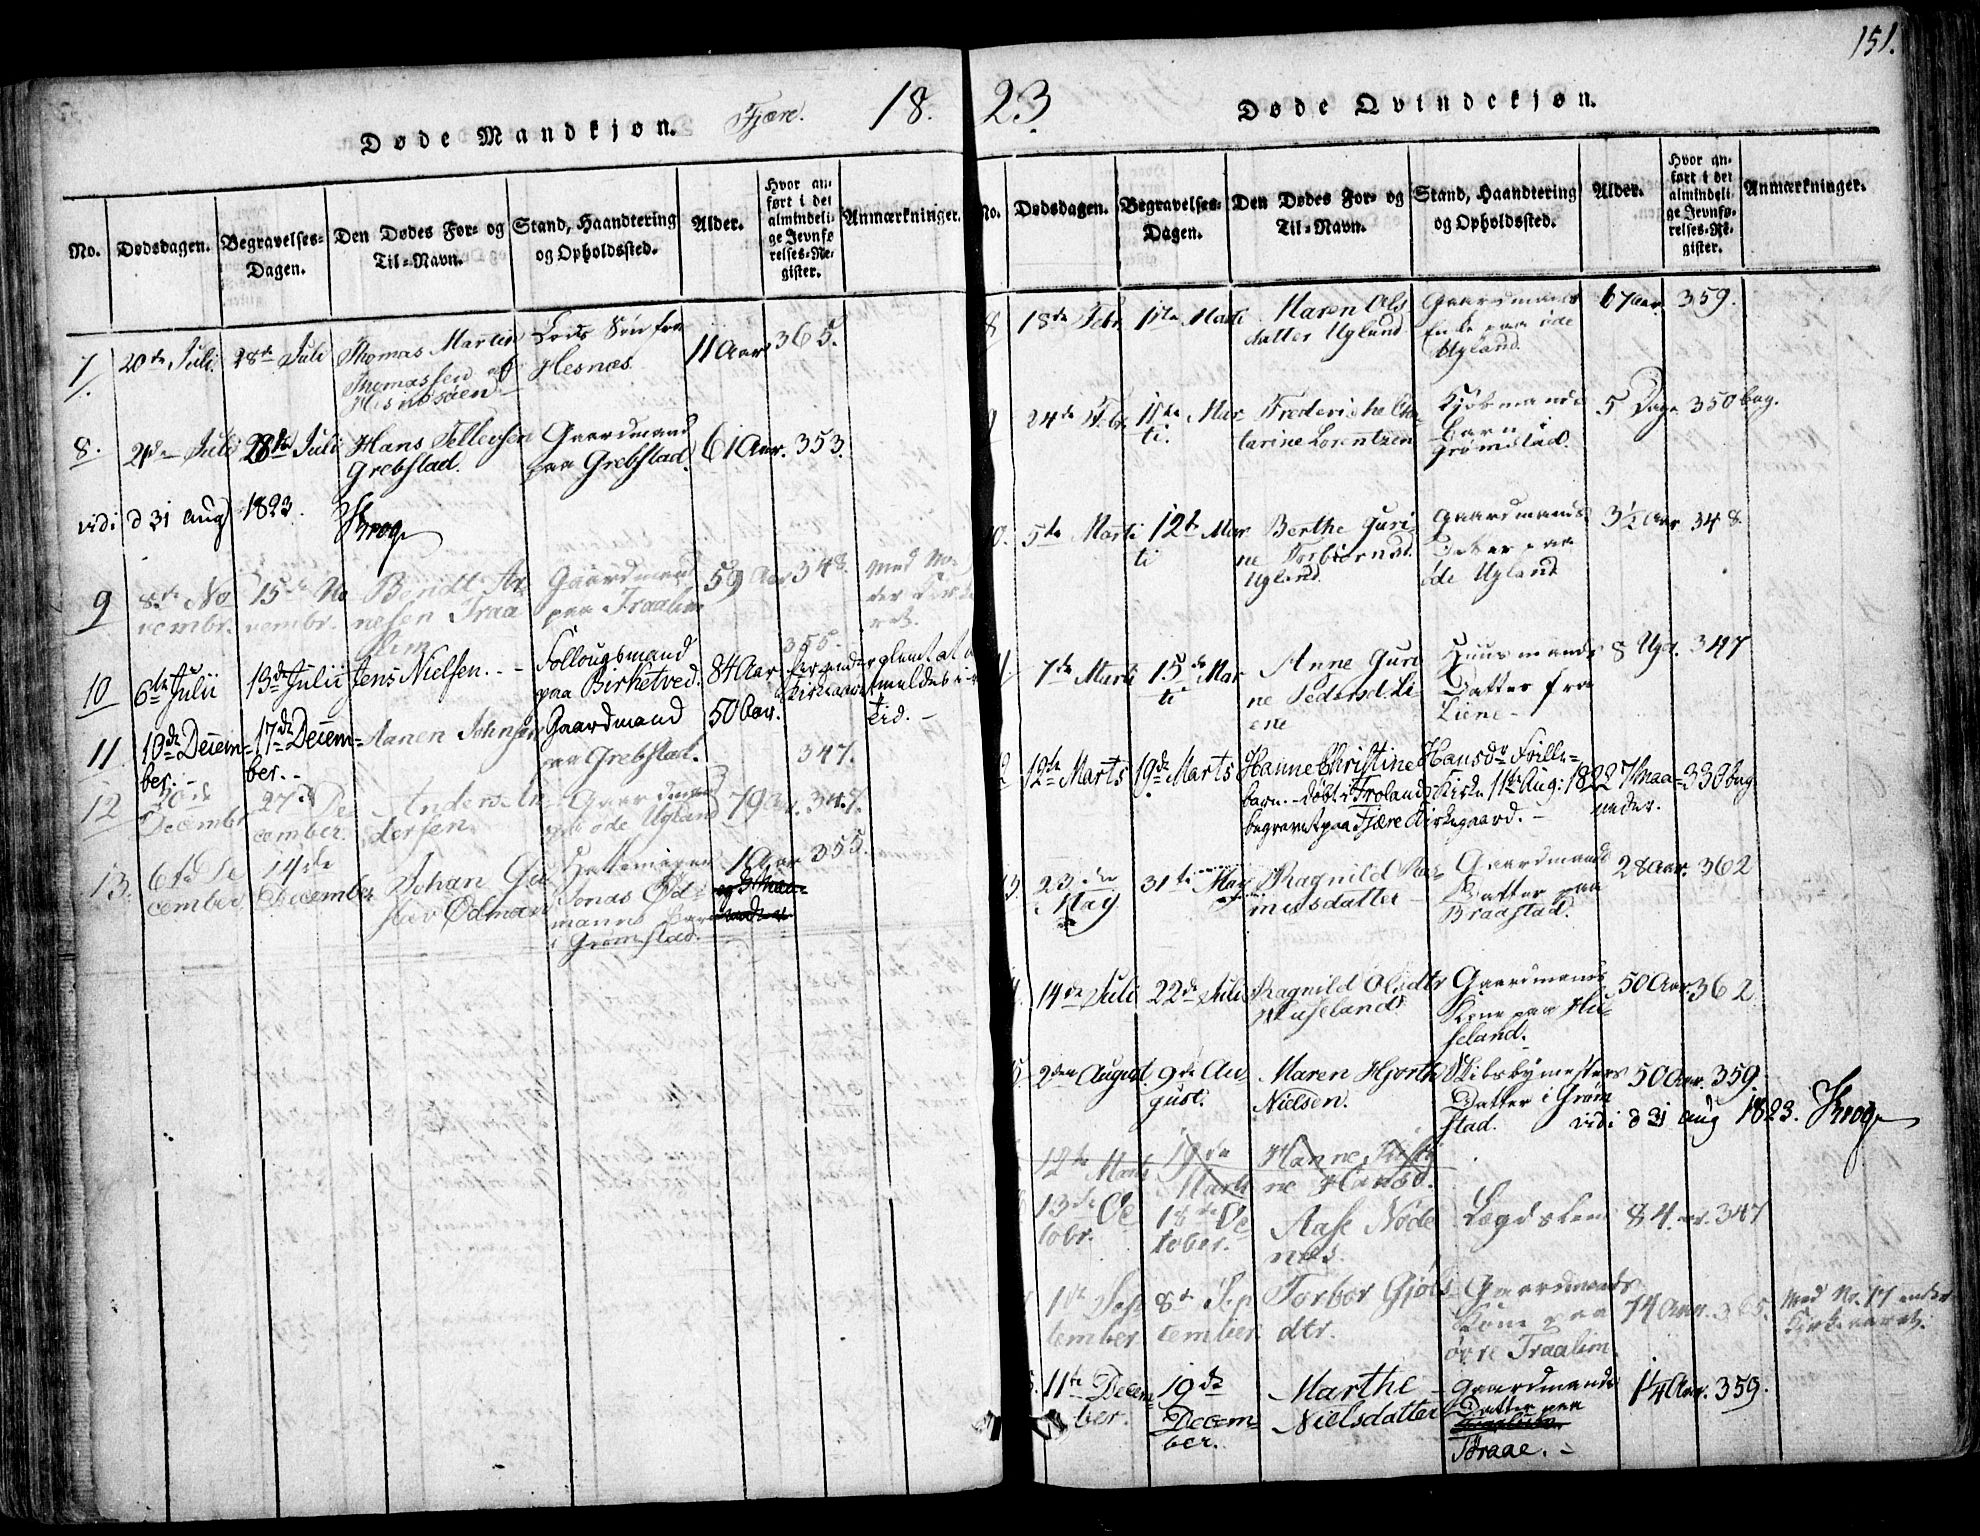 151.
Døde Mandkjøn. Fjære. 18.
No.
Dødsdagen.
Begravelses-Dagen.
Den Dødes For- og Til-Navn.
Stand, Haandtering og Opholdssted.
Alder.
Hvor anført i det almindelige Jevnførelses-Register.
Anmærkninger.
7.
20de Juli
28de Juli
Thomas Martin
Thomassen af
Hesnæs
11 Aar
365.
8.
Juli
28de Juli
Hans Tellevsen
Grebstad.
Gaardmand
paa Grebstad.
61 Aar.
353.
vidi d 31 Aug 1823. Krog
9
8de No
vembr.
15de No
vembr.
Bendt
nesen Traa
lim
Gaardmand
paa Traalim
59 Aar
348.
Med No
10
6te Julii
13de Julii
Jens Nielsen. -
Follougsmand
paa Birketved.
84 Aar
355.
11.
10de Decem=
ber. -
17de Decem=
ber. -
Aanen Johnsen
Gaardmand
paa Grebstad.
50 Aar.
347.
12
Decembr
27de De
cember.
Anders An
dersen
Gaardmand
øde Ugland
79 Ar.
347.
13.
6te De
cember
14de
December
Johan Gu
stav Ødman
Jonas Ød-
manns
i Grømstad.
1 Aar
355.
23.
Døde Qvindekjøn.
No.
Dødsdagen.
Begravelses-Dagen.
Den Dødes For- og Til-Navn.
Stand, Haandtering og Opholdssted.
Alder.
Hvor anført i det almindelige Jevnførelses-Register.
Anmærkninger.
8
18de Febr
11te Marti
Maren Ols
datter Ugland
Gaardmands
Enke paa øde
Ugland.
67 Aar.
359.
24de Febr.
11te Mar
ti.
Frederiche Cha
tarine Lorentzen
Kjøbmands
barn i
Grømstad.
5 Dage
350 bag.
0.
5te Marti
12te Mar
ti
Berthe Guri
ne Torbiørnsd.
Ugland.
Gaardmands
Datter paa
øde Ugland
3½ Aar
348.
7de Marti
15de Mar
ti
Anne Guri
ne Pedersd. Li
ene
Huusmands
Datter fra
Liene -
8 Ugr.
347
2
12te Marts
19de Marts
Hanne Christine Hansdr Frille=
barn. - døbt i Froland Kirke 11te Aug: 1822
begravet paa Fjære Kirkegaard. -
7 Maa=
neder.
330 bag
3.
23de
May
31te May
Ragnild
mersdatter
Gaardmands
Datter paa
Braastad.
28 Aar.
362
14de Juli
22de Juli
Ragnild Olsdtr
Huseland
Gaardmands
Kone paa Hu-
seland.
50 Aar.
362
5.
2den August
9de Au
gust.
Maren Hjorth
Nielsen.
Skibsbymesters
Datter i Grøm
stad.
50 Aar.
359.
vidi d 31 Aug 1823. Krog
12te Marts
19de
Marti
Hanne Kristi
ne Hansd.
13de Oc
tobr.
18de Oc
tober.
Aase Nøde
næs.
Lægdslem
84 Ar.
347
1te Sep
tember
8de Sep
tember.
Torbor Gjøls
dtr.
Gaardmands
Kone paa
øvre Traalim.
74 Aar.
365.
Med No. 17 under
Kirkeaaret.
11te Decem
ber.
19de
Decem=
ber.
Marthe
Nielsdatter
Gaardmands
Datter paa
Braae. -
1¼ Aar.
359.